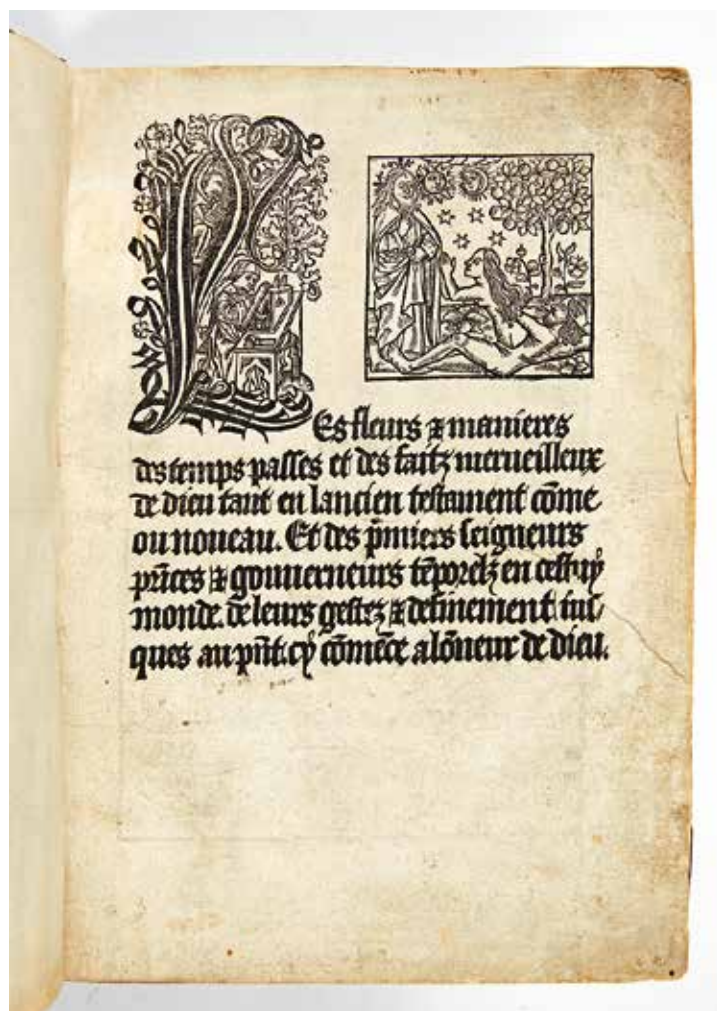 LEs fleurs ⁊ manieres
des temps passes et des faitz merueilleux
de dieu tant en lancien testament cõme
ou nouueau. Et des p̃miers seigneurs
prĩces ⁊ gouuerneurs tẽporelz en cestuy
monde. de leurs gestez ⁊ definement ius/
ques au pñt. cy cõmẽce a lõneur de dieu.